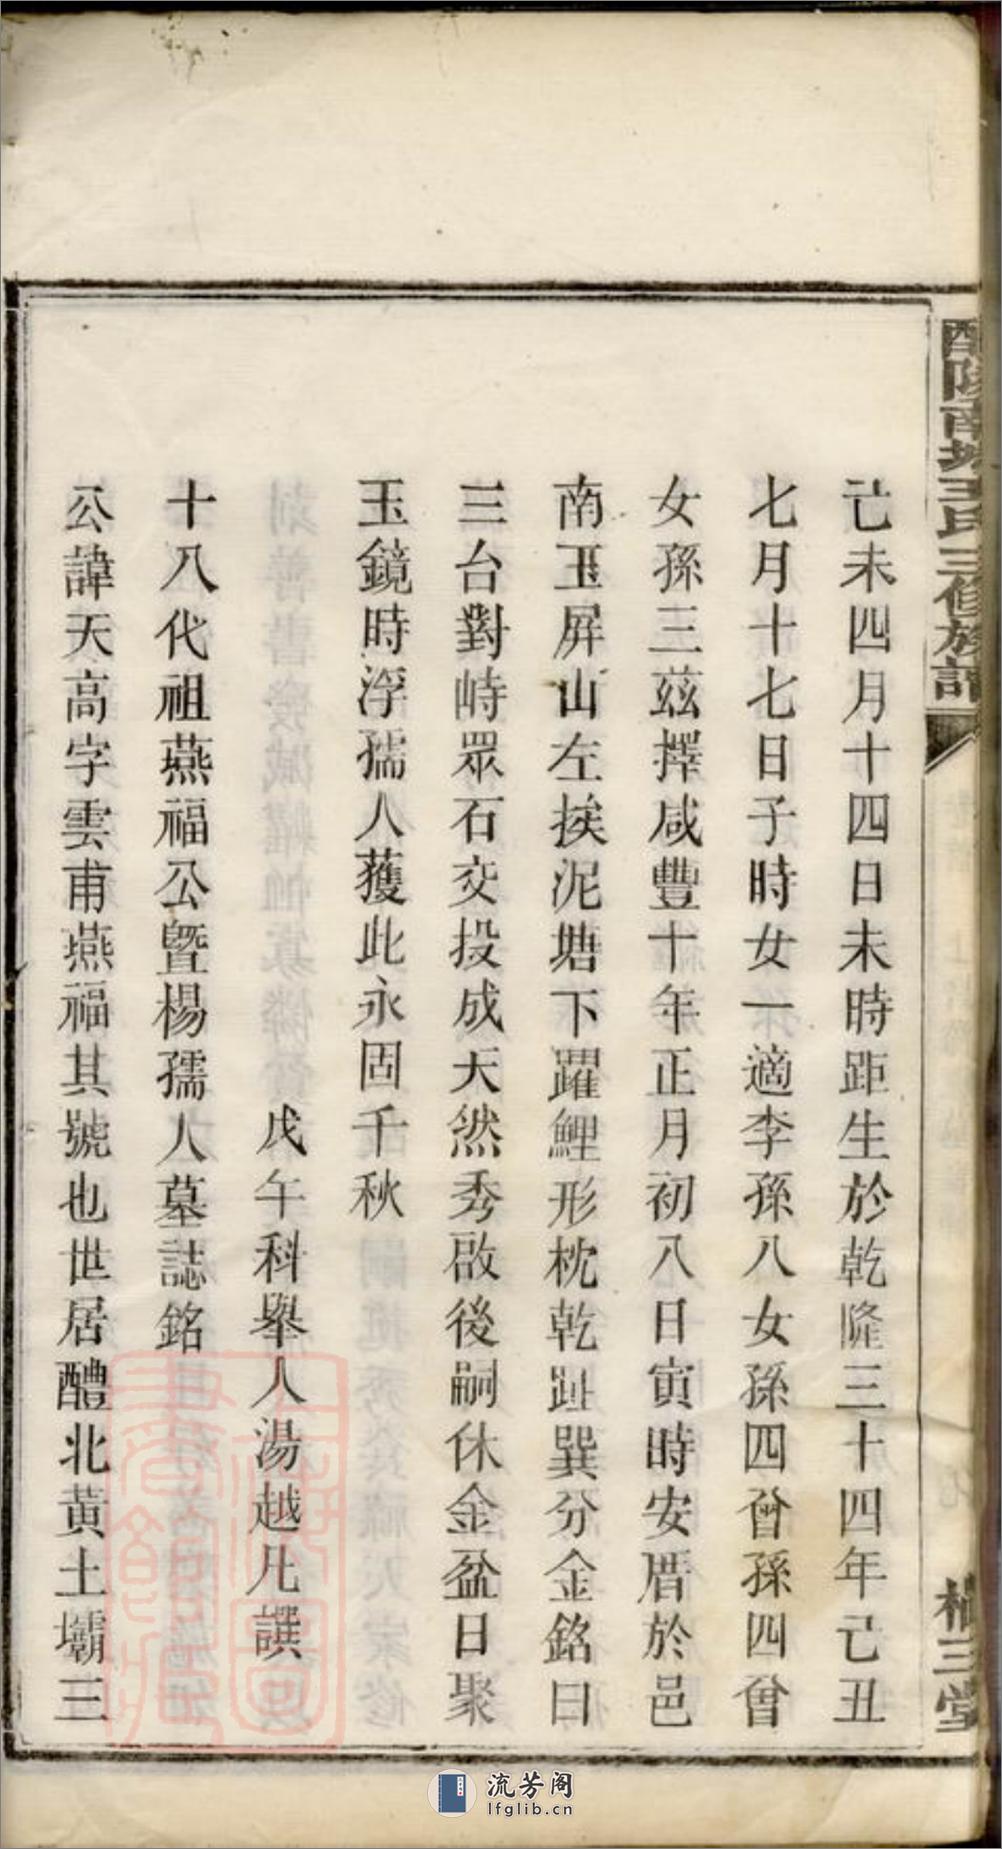 醴陵南城王氏三修族譜
己未四月十四日未時距生於乾隆三十四年己丑
七月十七日子時女一適李孫八女孫四曾孫四曾
女孫三茲擇咸豐十年正月初八日寅時安厝於邑
南玉屏山左挨泥塘下躍鯉形枕乾趾巽分金銘曰
三台對峙眾石交投成天然秀啟後嗣休金盆日聚
玉鏡時浮孺人獲此永固千秋
戊午科舉人湯越凡譔
十八代祖燕福公暨楊孺人墓誌銘
公諱天高字雲甫燕福其號也世居醴北黃土壩三
三堂
流芳阁
lfglib.cn